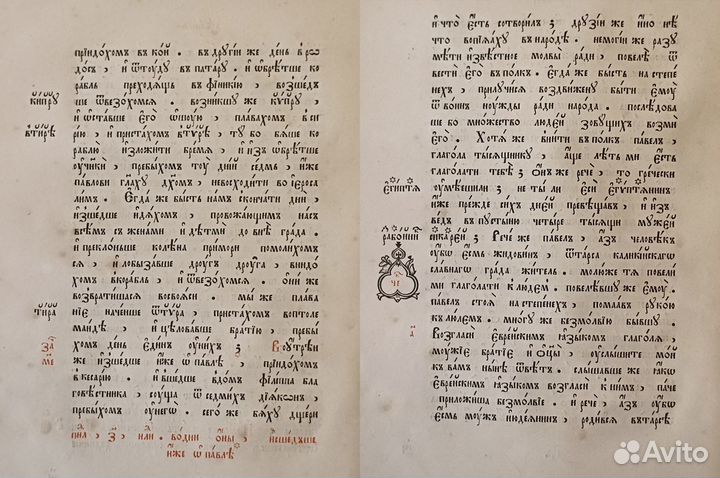 прїидо́хомъ въ ко́н . въ другі́и же де́нь в ро
до́съ , и҆ ѿту́ду въ пата́ру . и҆ ѡ҆брѣ́тше ко
ра́бль преходѧ́щъ въ фїникі́ю , возше́дъ
ше ѿвезо́хомсѧ . возни́кшу же кѵ́пру ,
и҆ ѡ҆ста́вше є҆го̀ ѡ҆шу́юю , пла́вахомъ в си
рі́ю , и҆ приста́хомъ в тѵ́рѣ , ту́ бо бѧ́ше ко
раблю̀ и҆зложи́ти бре́мѧ , и҆ и҆з ѡ҆брѣ́тше
ᲂу҆чнкѝ , пребы́хомъ тоу̀ дні́й се́дмь , и҆́же
па́влови глаху дх҃омъ , невосходи́ти во і҆еро́са
ли́мъ . є҆гда́ же бы́сть на́мъ сконча́ти дни̑ ,
и҆зше́дше и҆дѧ́хомъ , провожа́ющимъ на́съ
всѣ́мъ с жена́ми и҆ дѣтмѝ до внѣ̀ гра́да .
и҆ прекло́ньше колѣ́на при мо́ри помоли́хомсѧ
и҆ лобыза́вше дру́гъ дру́га , внидо́
хомъ в кора́бль , и҆ ѿвезо́хомсѧ . ѻ҆ни́ же
возврати́шасѧ восвоѧ́си . мы́ же пла́ва
нїе наче́ньше ѿ тѵ́ра , приста́хомъ в птоле
маи́дѣ , и҆ цѣлова́вше бра́тїю , пребы́
хомъ де́нь є҆ди́нъ ᲂу҆ ни́хъ ⁏ во ᲂу҆́трїи
же и҆зше́дше и҆́же ѡ҆ па́влѣ , прїидо́хомъ
в кесарі́ю . и҆ вше́дше в до́мъ фїли́ппа бла
говѣ́стника , су́ща ѿ седми́хъ дїѧ́конъ ,
пребы́хомъ ᲂу҆ него̀ . сего́ же бѧ́ху дще́ри
кѵ́пру
в тѵ́рѣ
тѵ́ра
за҄
ме
и҆ли̑ . во дни̑ ѻ҆́ны , и҆сше́дъше
и҆́же ѡ҆ па́влѣ
и҆ что̀ є҆́сть сотвори́лъ ⁏ друзі́и же и҆́но нѣ́
что вопїѧ́ху в наро́дѣ . немоги́й же разу
мѣ́ти и҆звѣ́стное молвы̀ ра́ди , повелѣ̀ ѿ
вестѝ є҆го̀ в по́лкъ . є҆гда́ же бы́сть на степе́
нехъ , прилучи́сѧ воздви́жену бы́ти є҆мꙋ̀
ѿ во́инъ ноу́жды ра́ди наро́да . послѣ́дова
ше бо мно́жество люді́й зову́щихъ возмѝ
є҆го̀ . хотѧ́ же вни́ти в по́лкъ па́велъ ,
глаго́ла ты́сѧщнику , а҆́ще лѣ́ть ми є҆́сть
глаго́лати тебѣ̀ ⁏ ѻ҆́нъ же речѐ , то гре́чески
ᲂу҆мѣ́еши ли ⁏ не ты́ ли є҆сѝ є҆гѵ́птѧнинъ
и҆́же пре́жде си́хъ дні́й превѣща́въ , и҆ и҆з
ве́дъ в пусты́ню четы́ре ты́сѧщи муже́й
сїкарі́й ⁏ рече́ же па́велъ , а҆́зъ человѣ́къ
ᲂу҆́бо є҆́смь жидови́нъ , ѿ та́рса кїлїкі́йскаго
сла́внаго гра́да жи́тель . молю́же тѧ повели́
ми глаго́лати к лю́демъ . повелѣ́вшу же є҆мꙋ̀ .
па́велъ стоѧ̀ на степе́нехъ , пома́авъ руко́ю
к лю́демъ . мно́гу же безмо́лвїю бы́вшу .
возгласѝ є҆вре́йскимъ ѧ҆зы́комъ глаго́лѧ ,
му́жїе бра́тїе и҆ ѻ҆тцы̀ , ᲂу҆слы́шите мо́й
к ва́мъ ны́нѣ ѿвѣ́тъ . слы́шавше же ꙗ҆́кѡ
є҆вре́йскимъ ѧ҆зы́комъ возгласѝ к ни́мъ , па́че
приложи́ша безмо́лвїе . и҆ речѐ , а҆́зъ ᲂу҆́бо
є҆́смь му́жъ и҆юде́ѧнинъ , роди́всѧ в та́рсѣ
є҆гі́птѧ
разбо́йникъ
Avito